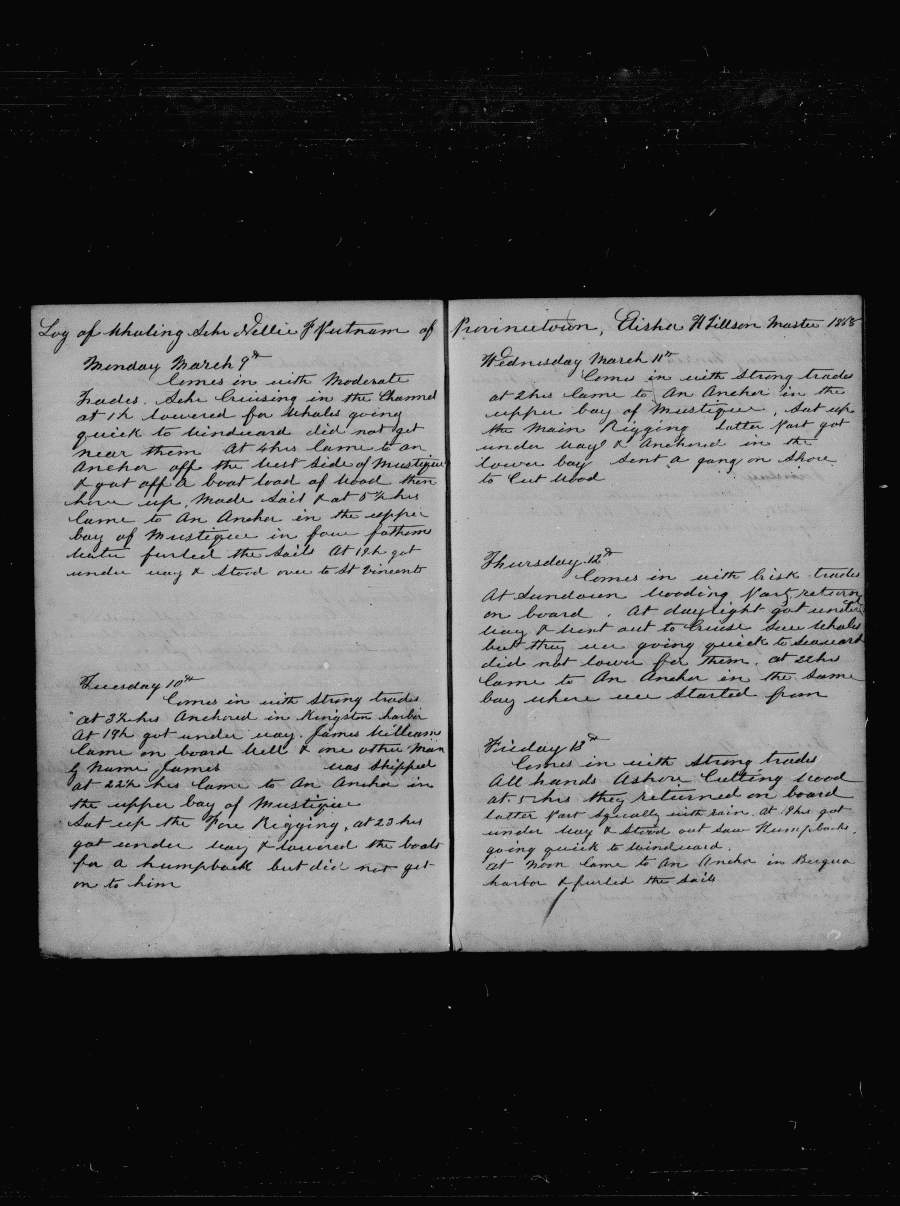 Log of Whaling Schr Nellie S Putnam of
Monday March 9th
Comes in with Moderate
Trades. Schr Cruising in the Channel
at 1h lowered for Whales going
quick to windward did not get
near them At 4hrs Came to an
Anchor off the West Side of Mustique
& got off a boat load of Wood then
hove up, Made Sail & at 5½ hrs
Came to An Anchor in the upper
bay of Mustique in four fathoms
Water furled the Sails At 19h got
under way & Stood over to St Vincents
Tuesday 10th
Comes in with Strong trades
at 3½ hrs Anchored in Kingston harbor
At 19h got under way. James William
Came on board Well & one other Man
by Name James was Shipped
at 22½ hrs Came to An Anchor in
the upper bay of Mustique
Sat up the Fore Rigging, at 23 hrs
got under way & lowered the boats
for a humpback but did not get
on to him
Provincetown, Elisha H Tillson Master 1868
Wednesday March 11th
Comes in with Strong trades
at 2hrs Came to An Anchor in the
upper bay of Mustique, Sat up
the Main Rigging latter Part got
under way & Anchored in the
lower bay Sent a gang on Shore
to Cut Wood
Thursday 12th
Comes in with brisk trades
At Sundown Wooding Party return
on board. At daylight got under
Way & Went out to Cruise Saw Whales
but they were going quick to Seaward
did not lower for them. at 22hrs
Came to An Anchor in the Same
bay where we Started from
Friday 13th
Comes in with Strong trades
All hands Ashore Cutting Wood
at 5 hrs they returned on board
latter Part Squally with rain. At 19hs got
under Way & Stood out Saw Humpbacks,
going quick to Windward.
at Noon Came to An Anchor in Bequa
harbor & furled the Sails